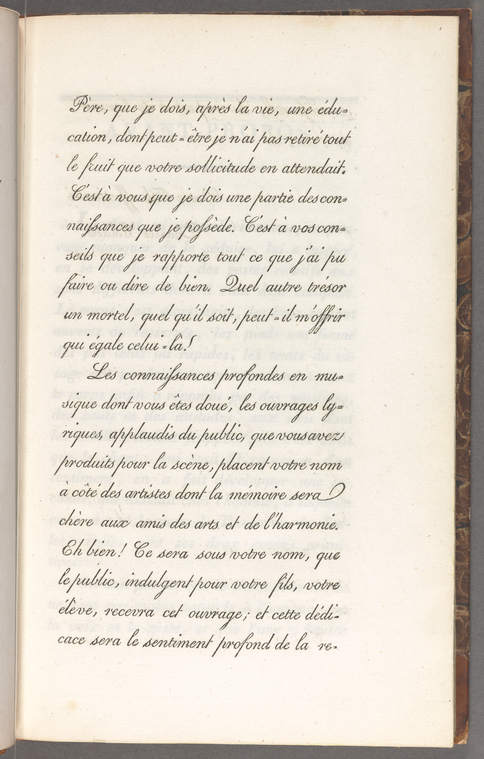 Père, que je dois, après la vie, une édu-
cation, dont peut-être je n'ai pas retiré tout
le fruit que votre sollicitude en attendait.
C'est à vous que je dois une partie des con-
naiſsances que je poſsède. C'est à vos con-
seils que je rapporte tout ce que j'ai pu
faire ou dire de bien. Quel autre trésor
un mortel, quel qu'il soit, peut-il m'offrir
qui égale celui-là!
Les connaiſsances profondes en mu-
sique dont vous êtes doué, les ouvrages ly-
riques, applaudis du public, que vous avez
produits pour la scène, placent votre nom
à côté des artistes dont la mémoire sera
chère aux amis des arts et de l'harmonie.
Eh bien! Ce sera sous votre nom, que
le public, indulgent pour votre fils, votre
élève, recevra cet ouvrage; et cette dédi-
cace sera le sentiment profond de la re-